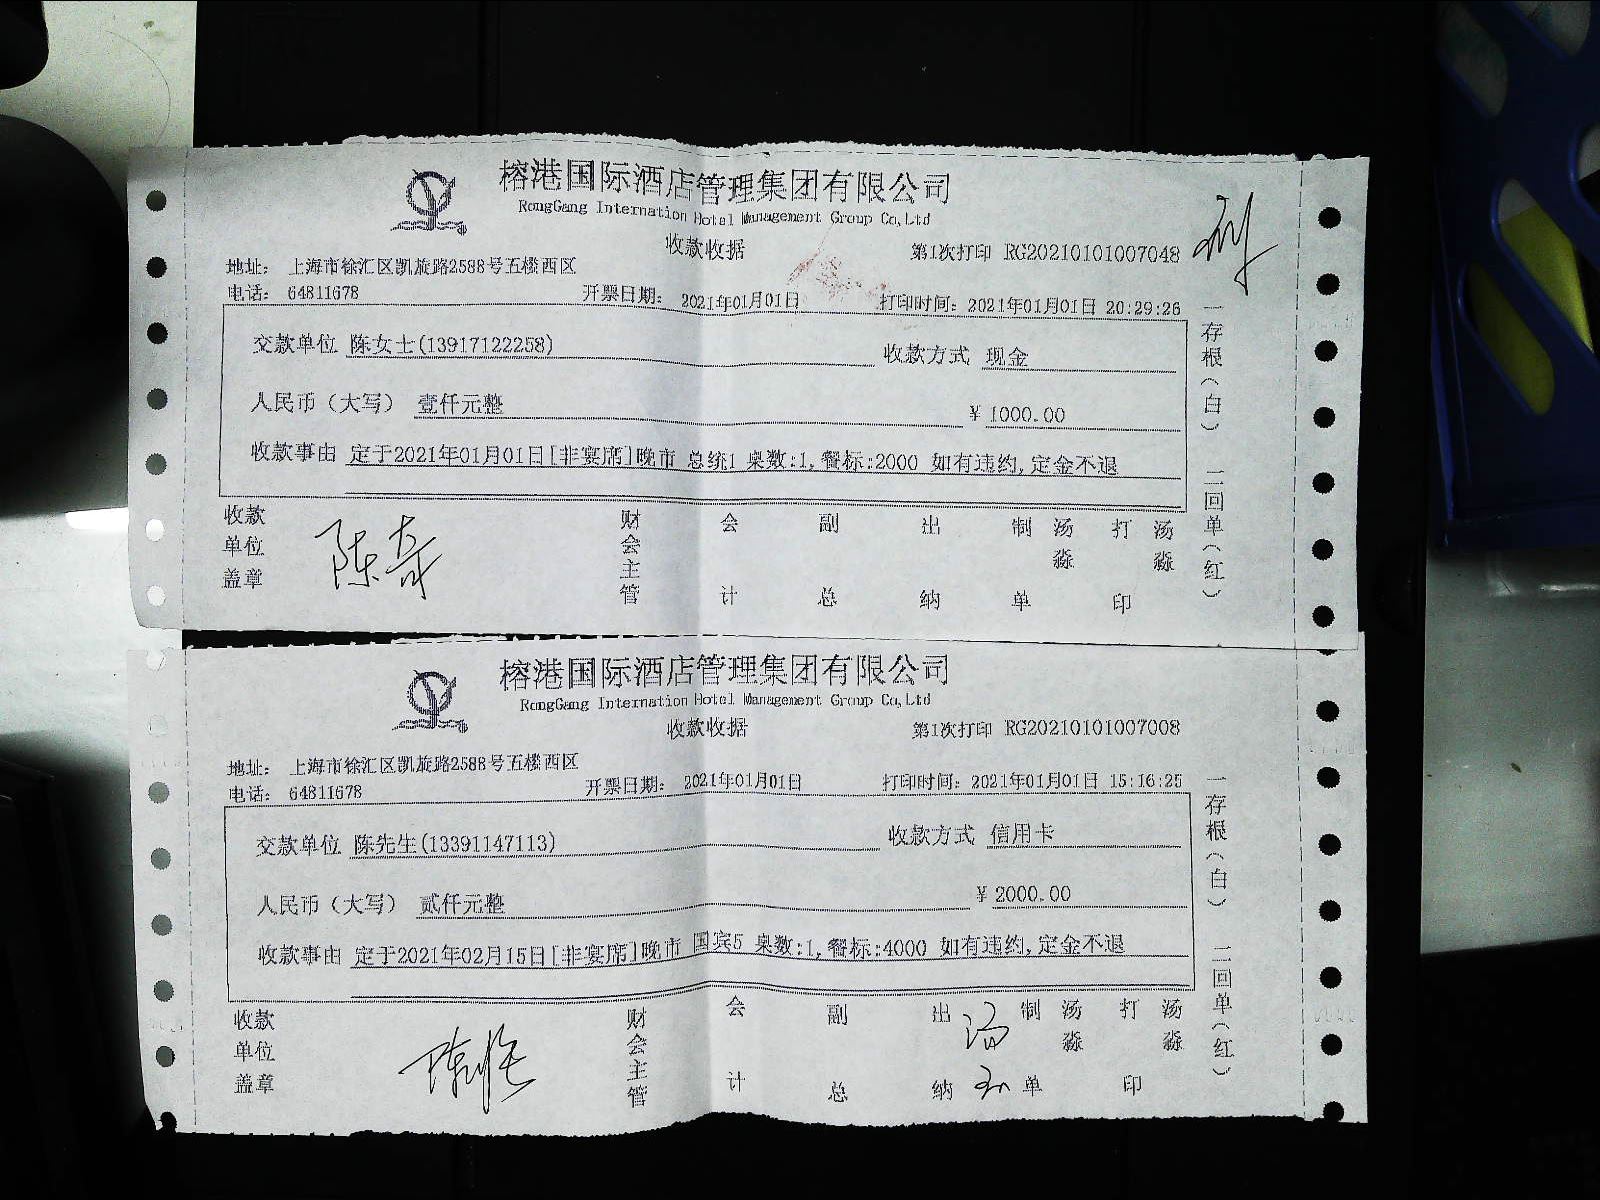 榕港国际酒店管理集团有限公司
RongGang Internation Hotel Management Group Co,Ltd
收款收据 第1次打印 RG20210101007048
地址: 上海市徐汇区凯旋路2588号五楼西区
电话: 64811678 开票日期: 2021年01月01日 打印时间: 2021年01月01日 20:29:26
交款单位 陈女士(13917122258) 收款方式 现金
人民币（大写） 壹仟元整 ¥ 1000.00
收款事由 定于2021年01月01日[非宴席]晚市 总统1 桌数:1,餐标:2000 如有违约,定金不退
收款单位盖章 陈奇 财会主管 会计 副总 出纳 制单 汤淼 打印 汤淼
一存根（白） 二回单（红）
榕港国际酒店管理集团有限公司
RongGang Internation Hotel Management Group Co,Ltd
收款收据 第1次打印 RG20210101007008
地址: 上海市徐汇区凯旋路2588号五楼西区
电话: 64811678 开票日期: 2021年01月01日 打印时间: 2021年01月01日 15:16:25
交款单位 陈先生(13391147113) 收款方式 信用卡
人民币（大写） 贰仟元整 ¥ 2000.00
收款事由 定于2021年02月15日[非宴席]晚市 国宾5 桌数:1,餐标:4000 如有违约,定金不退
收款单位盖章 财会主管 会计 副总 出纳 制单 汤淼 打印 汤淼
一存根（白） 二回单（红）